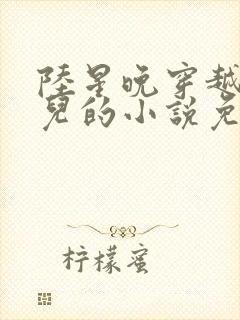 陸星晚穿越
兒的小說免
柠檬蜜